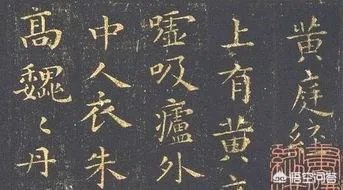 黄庭經
上有黄
嘘吸廬外
中人衣朱
高巍〻丹
悟空问答